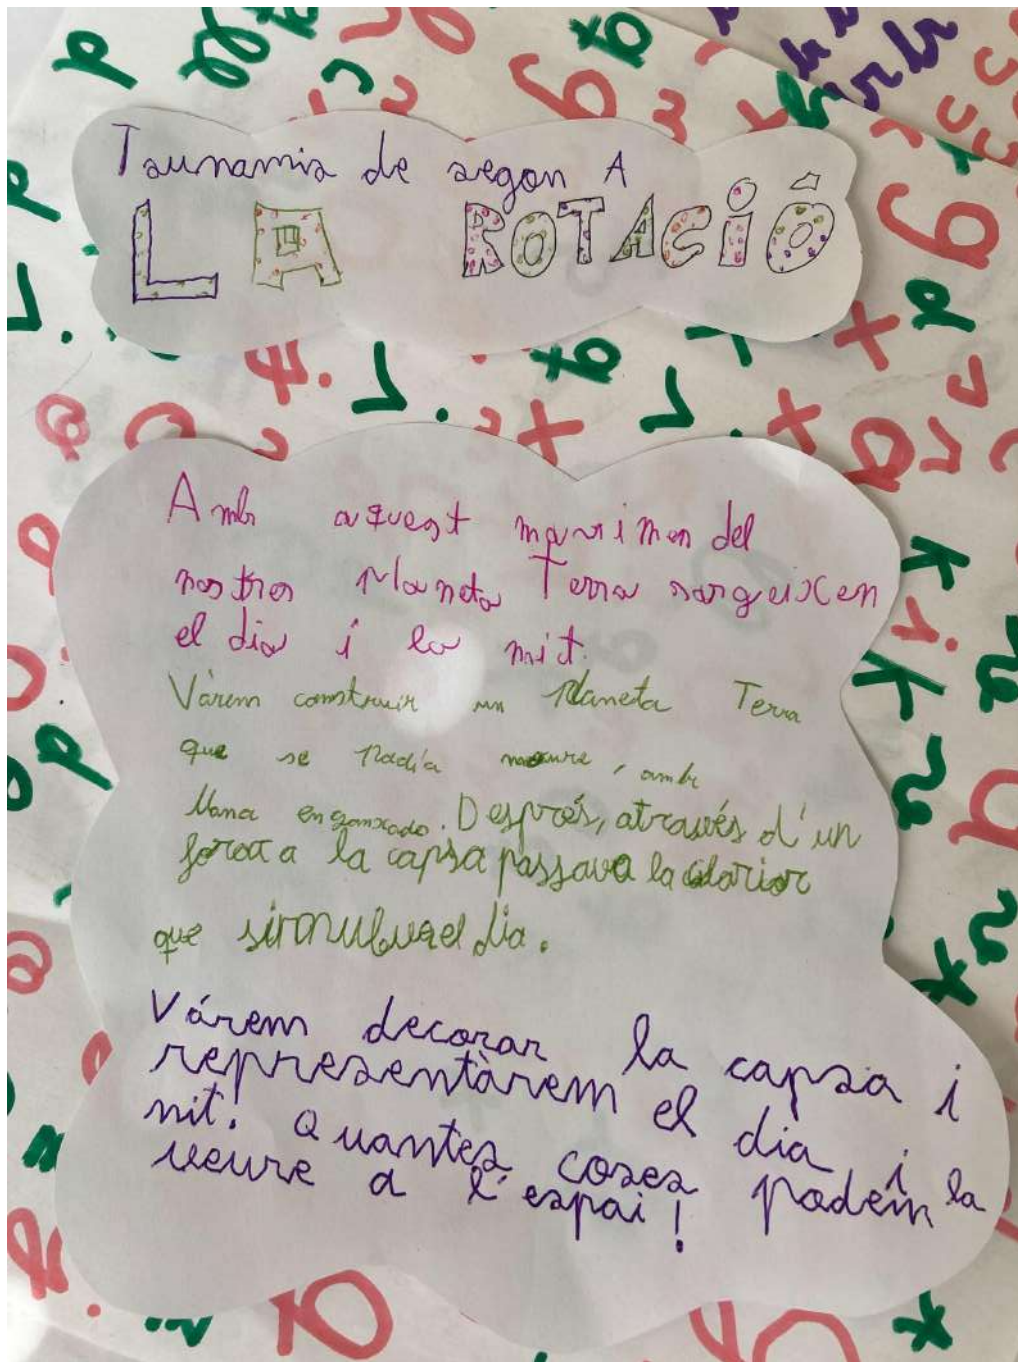 Tsunamis de segon A
LA ROTACIÓ
Amb aquest moviment del
nostres Planeta Terra sorgeixen
el dia i la nit.
Vàrem construir un Planeta Terra
que se podía moure, amb
llana enganxada. Després, através d'un
forat a la capsa passava la claror
que simulava el dia.
Várem decorar la capsa i
representàrem el dia i la
nit. Quantes coses podem
veure a l'espai!